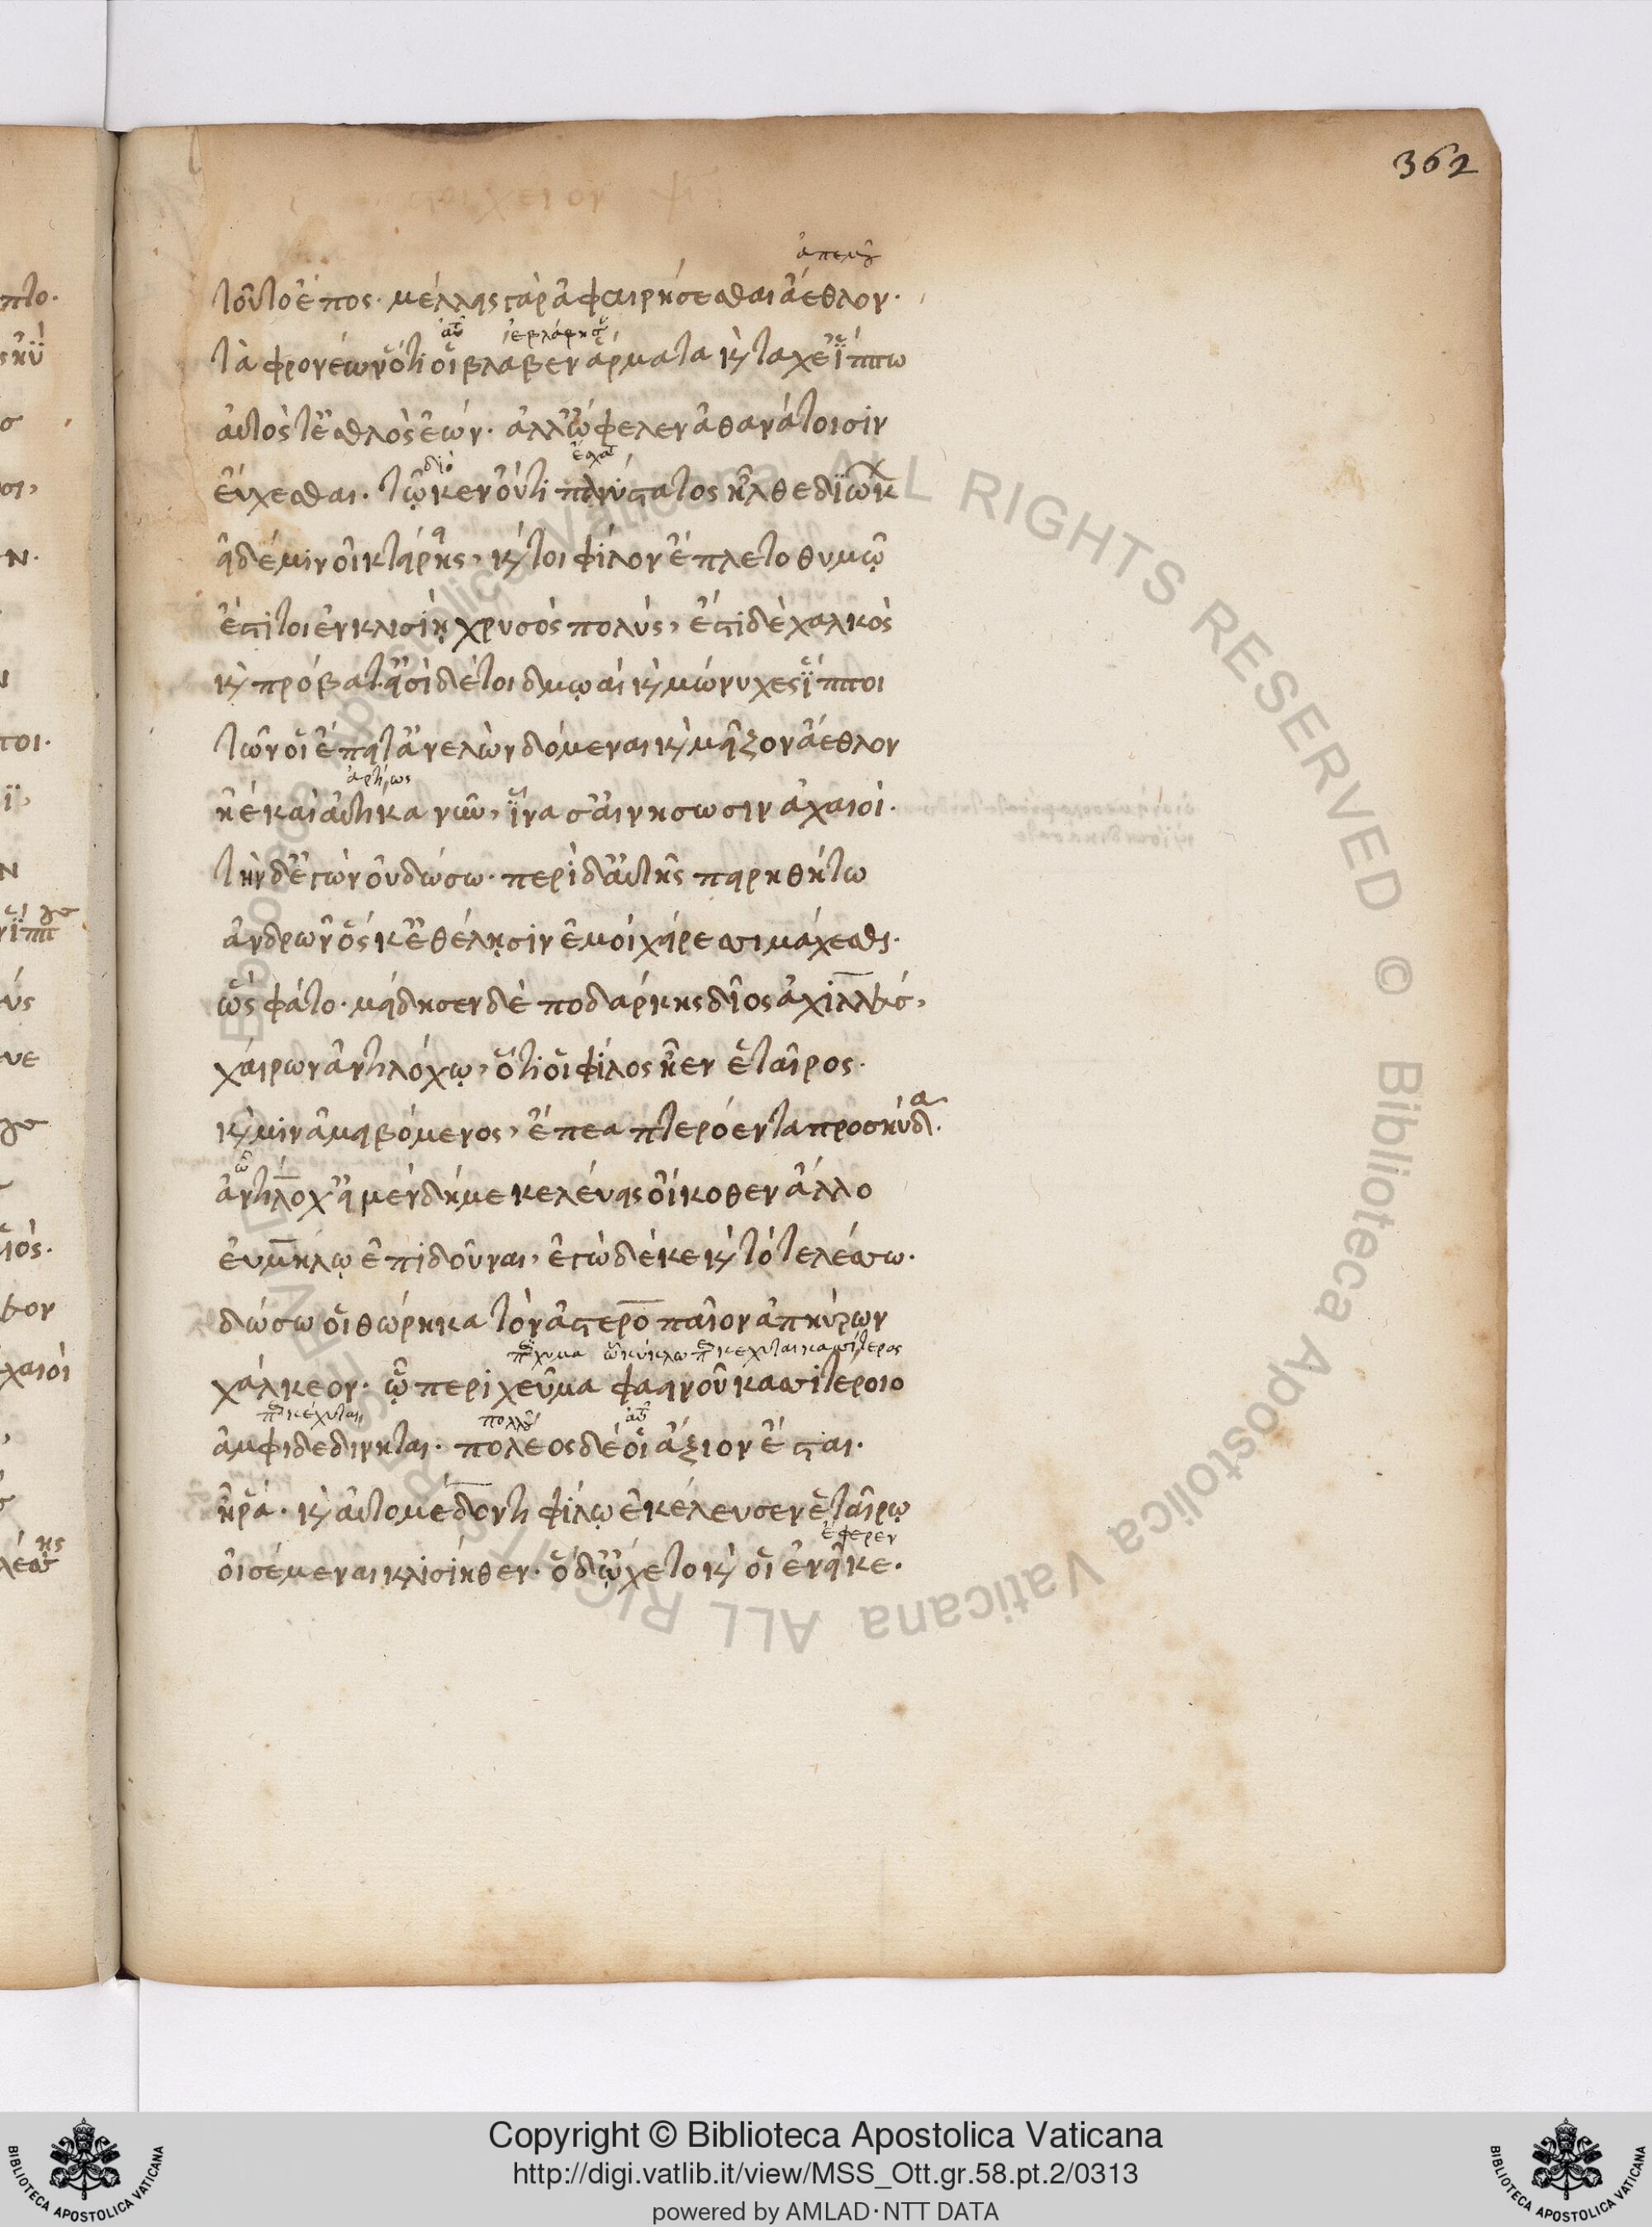 362
τοῦτο ἔπος· μέλλεις γὰρ ἀφαιρήσεσθαι ἄεθλον·
αὐτ ἐβλάφησ
τὰ φρονέων ὅτι οἱ βλάβεν ἅρματα κ̀ ταχέ ἵππω
αὐτὸς τ' ἐσθλὸς ἐών· ἀλλ' ὤφελεν ἀθανάτοισιν
διὸ ἔσχατ
εὔχεσθαι. τῷ κεν οὔτι πανύστατος ἦλθε διώκ
εἰ δέ μιν οἰκτείρεις, κ̀ τοι φίλον ἔπλετο θυμῷ
ἔστι τοι ἐν κλισίῃ χρυσὸς πολύς, ἔστι δὲ χαλκὸς
κ̀ πρόβατ' εἰσὶ δέ τοι δμωαὶ κ̀ μώνυχες ἵπποι
τῶν οἱ ἔπειτ' ἀνελὼν δόμεναι κ̀ μεῖζον ἄεθλον
ἀρτίως
ἠὲ καὶ αὐτίκα νῦν, ἵνα σ' αἰνήσωσιν ἀχαιοί.
τὴν δ' ἐγὼν οὐ δώσω· περὶ δ' αὐτῆς πειρηθήτω
ἀνδρῶν ὅς κ' ἐθέλῃσιν ἐμοὶ χείρεσσι μάχεσθαι.
ὣς φάτο· μείδησεν δὲ ποδάρκης δῖος ἀχιλλεύς,
χαίρων ἀντιλόχῳ, ὅτι οἱ φίλος ἦεν ἑταῖρος·
κ̀ μιν ἀμειβόμενος, ἔπεα πτερόεντα προσηύδα.
ἀντίλοχ' εἰ μὲν δή με κελεύεις οἴκοθεν ἄλλο
εὐμήλῳ ἐπιδοῦναι, ἐγὼ δέ κε κ̀ τὸ τελέσσω.
δώσω οἱ θώρηκα τὸν ἀστεροπαῖον ἀπηύρων
χάλκεον· ᾧ περὶ χεῦμα φαεινοῦ κασσιτέροιο
πολλοῦ αὐτ
ἀμφιδεδίνηται· πολέος δέ οἱ ἄξιον ἔσται.
ἦ ῥα· κ̀ αὐτομέδοντι φίλῳ ἐκέλευσεν ἑταίρῳ
ἔφερεν
οἰσέμεναι κλισίηθεν· ὁ δ' ᾤχετο κ̀ οἱ ἔνεικε.
Copyright © Biblioteca Apostolica Vaticana
http://digi.vatlib.it/view/MSS_Ott.gr.58.pt.2/0313
powered by AMLAD·NTT DATA
BIBLIOTECA APOSTOLICA VATICANA
BIBLIOTECA APOSTOLICA VATICANA
Biblioteca Apostolica Vaticana ALL RIGHTS RESERVED © Biblioteca Apostolica Vaticana ALL RIGHTS RESERVED ©